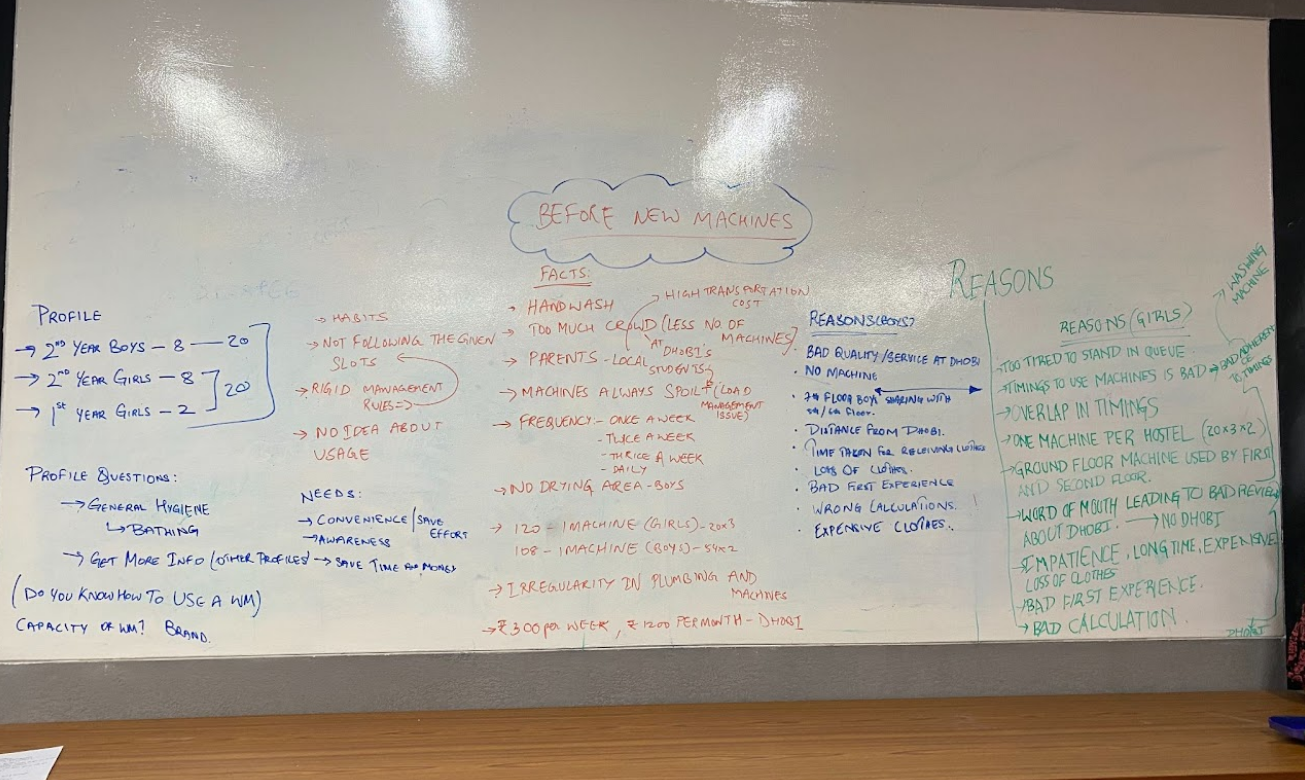 BEFORE NEW MACHINES
PROFILE
→ 2nd YEAR BOYS – 8 — 20
→ 2nd YEAR GIRLS – 8
→ 1st YEAR GIRLS – 2
20
PROFILE QUESTIONS:
→ GENERAL HYGIENE
↳ BATHING
→ GET MORE INFO (OTHER PROFILES)
(DO YOU KNOW HOW TO USE A WM)
CAPACITY OF WM? BRAND.
→ HABITS
→ NOT FOLLOWING THE GIVEN
SLOTS
→ RIGID MANAGEMENT
RULES →
→ NO IDEA ABOUT
USAGE
NEEDS:
→ CONVENIENCE / SAVE
EFFORT
→ AWARENESS
→ SAVE TIME AND MONEY
FACTS:
→ HANDWASH
→ HIGH TRANSPORTATION
COST
→ TOO MUCH CROWD (LESS NO. OF
MACHINES)
AT DHOBI'S
→ PARENTS – LOCAL
STUDENTS
→ MACHINES ALWAYS SPOIL (LOAD
MANAGEMENT
ISSUE)
→ FREQUENCY – ONCE A WEEK
– TWICE A WEEK
– THRICE A WEEK
– DAILY
→ NO DRYING AREA – BOYS
→ 120 – 1 MACHINE (GIRLS) – 20x3
108 – 1 MACHINE (BOYS) – 54x2
→ IRREGULARITY IN PLUMBING AND
MACHINES
→ ₹300 per WEEK, ₹1200 PER MONTH – DHOBI
REASONS (BOYS)
• BAD QUALITY/SERVICE AT DHOBI
• NO MACHINE
• 7th FLOOR BOYS SHARING WITH
5th/6th floor.
• DISTANCE FROM DHOBI.
• TIME TAKEN FOR RECEIVING CLOTHES
• LOSS OF CLOTHES.
• BAD FIRST EXPERIENCE
• WRONG CALCULATIONS.
• EXPENSIVE CLOTHES.
REASONS
REASONS (GIRLS)
→ TOO TIRED TO STAND IN QUEUE
→ TIMINGS TO USE MACHINES IS BAD → BAD ADHERENCE
TO TIMINGS
→ WASHING
MACHINE
→ OVERLAP IN TIMINGS
→ ONE MACHINE PER HOSTEL (20x3x2)
→ GROUND FLOOR MACHINE USED BY FIRST
AND SECOND FLOOR.
→ WORD OF MOUTH LEADING TO BAD REVIEW
ABOUT DHOBI. → NO DHOBI
→ IMPATIENCE, LONG TIME, EXPENSIVE
LOSS OF CLOTHES
→ BAD FIRST EXPERIENCE.
→ BAD CALCULATION
DHOBI